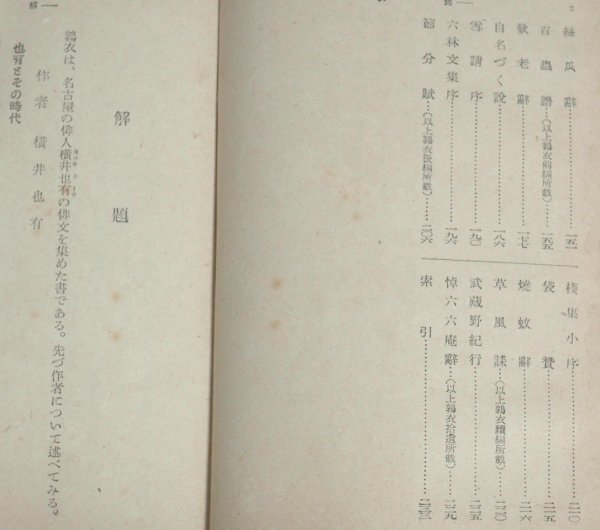 2
絲瓜辭……一五一
百蟲譜……(以上鶉衣前編所載)……一五五
歎老辭……一七七
自名づく說……一八六
雪請序……一九〇
六林文集序……一九六
節分賦……(以上鶉衣後編所載)……二〇六
棧集小序……二一〇
袋贊……二一五
燒蚊辭……二一六
草風誄……(以上鶉衣續編所載)……二二〇
武藏野紀行……二二五
悼六六庵辭……(以上鶉衣拾遺所載)……二二九
索引……
解題
鶉衣は、名古屋の俳人橫井也有の俳文を集めた書である。先づ作者について述べてみる。
作者 橫井也有
也有とその時代
解